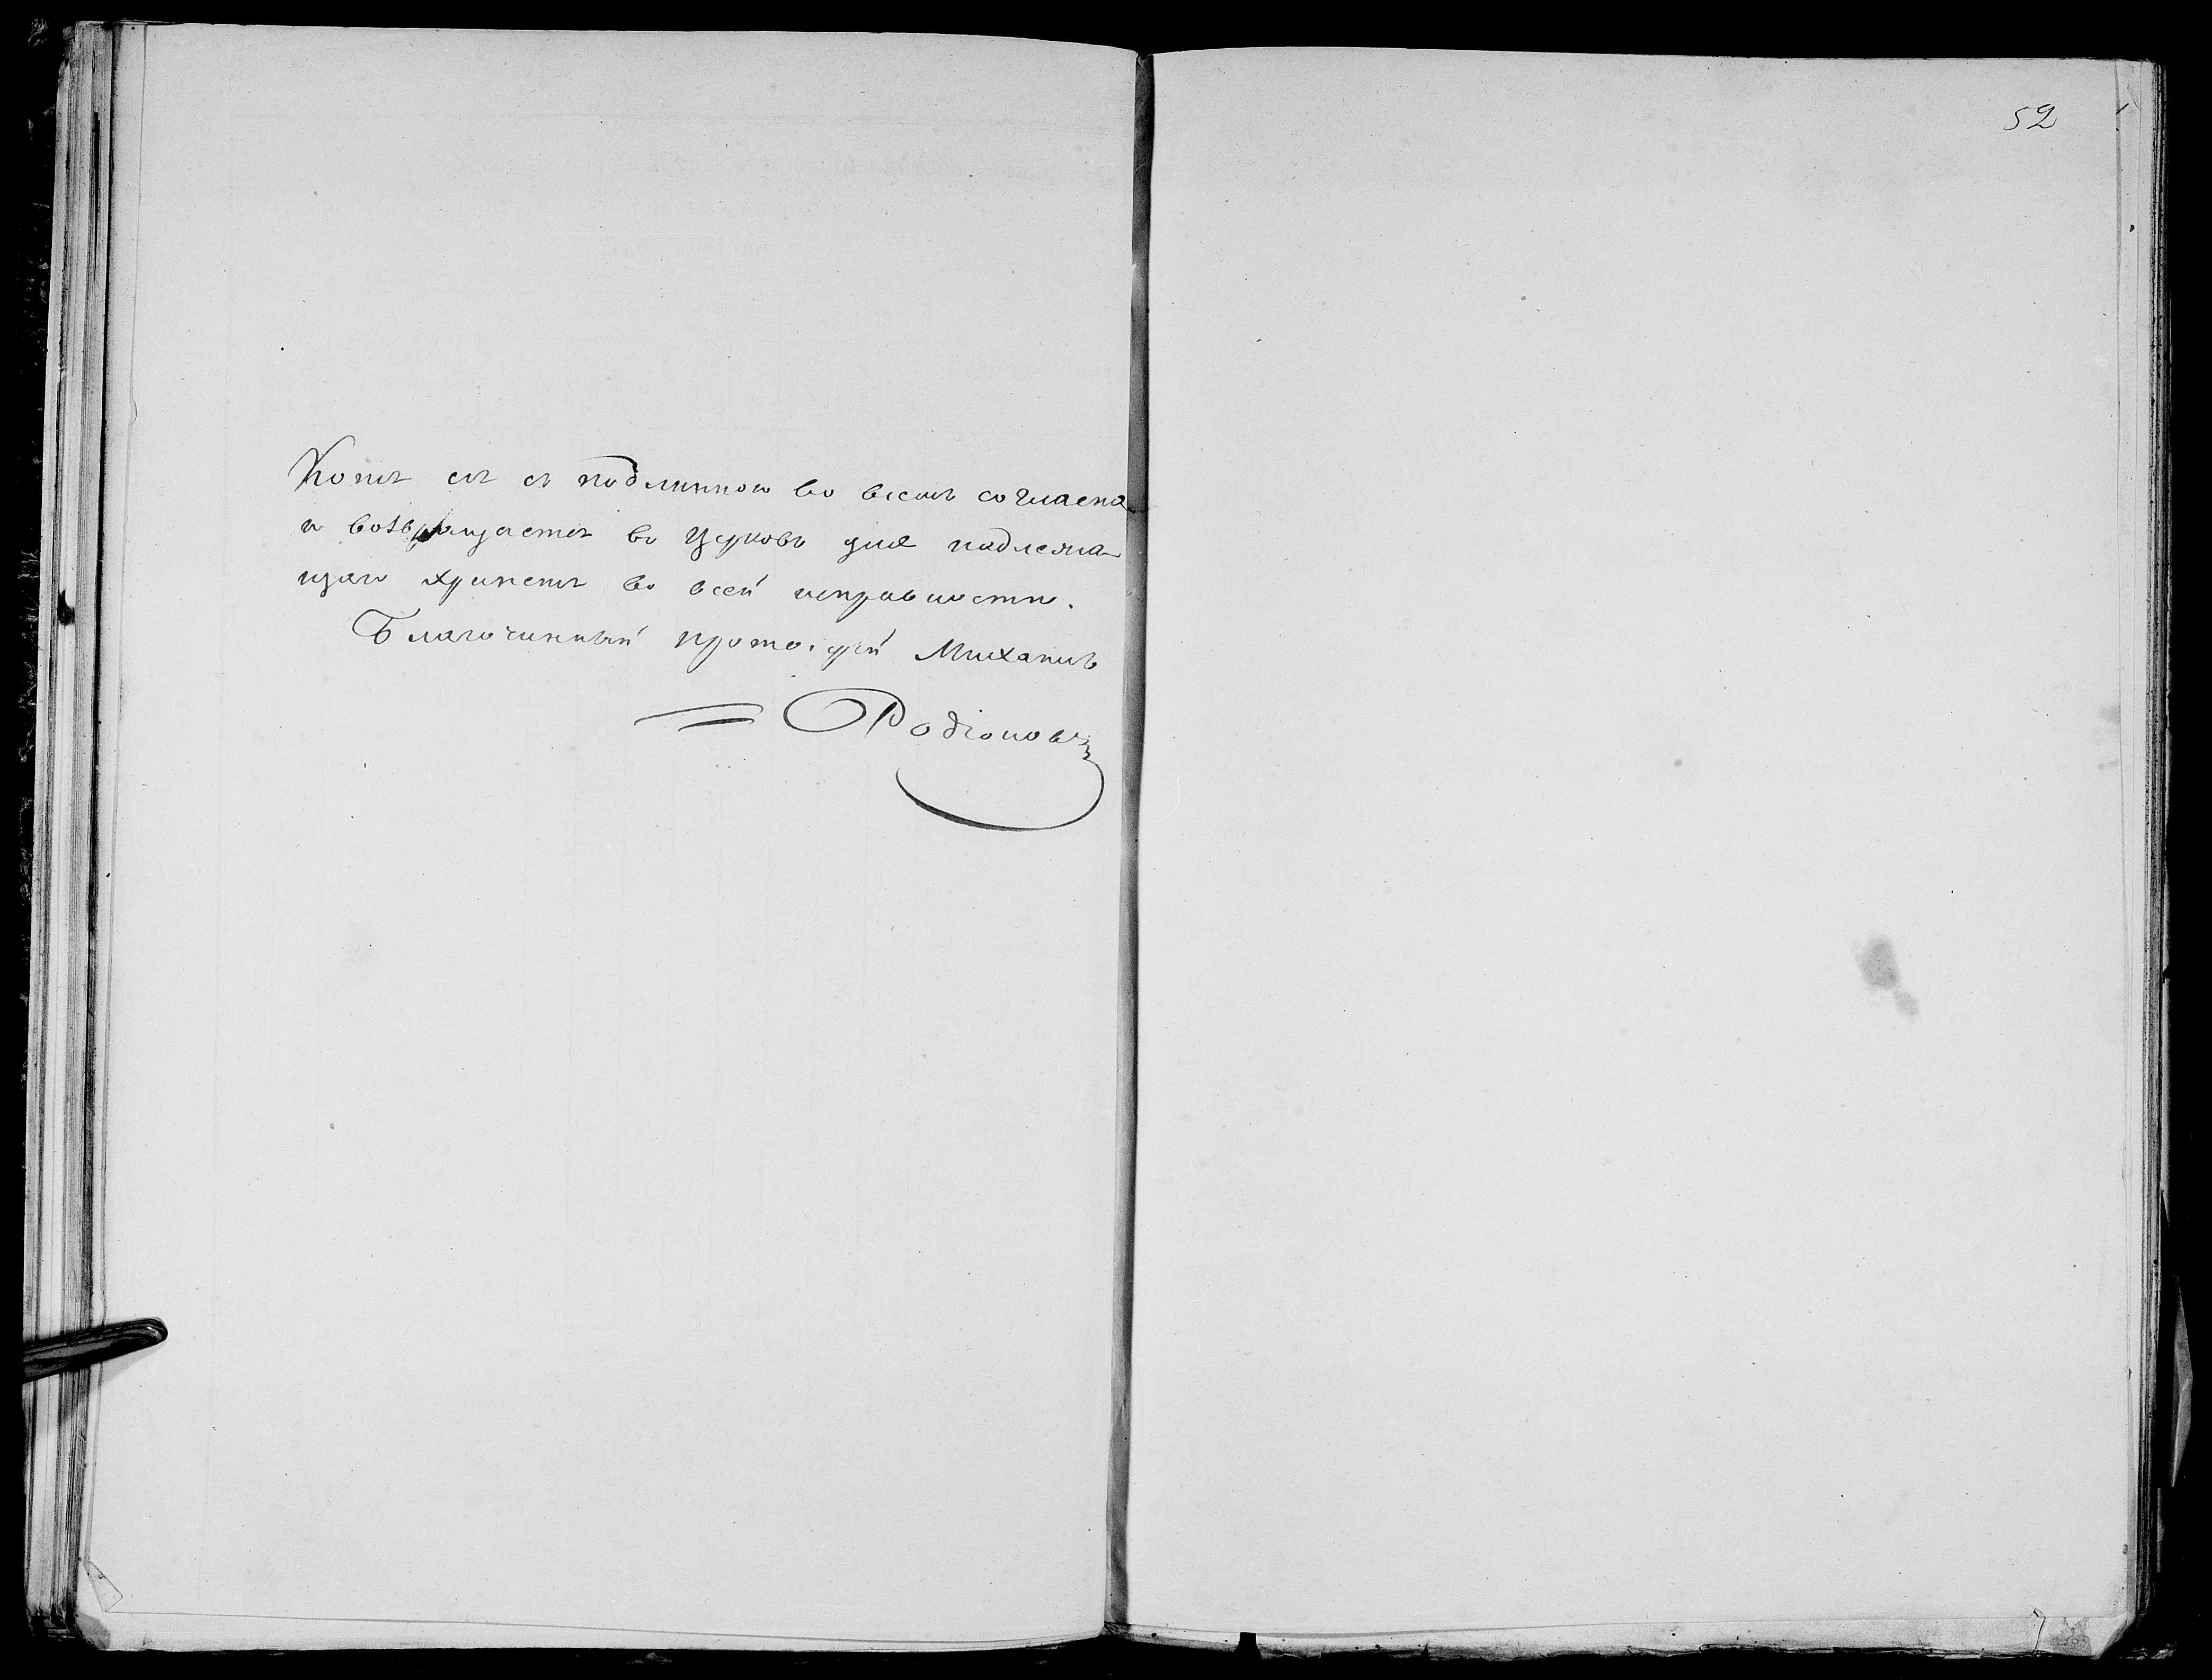 Копія сія съ подлинною во всемъ согласна
и возвращается въ Церковь для надлежа-
щаго храненія во всей исправности.
Благочинный протоіерей Михаилъ
Родіоновъ
52